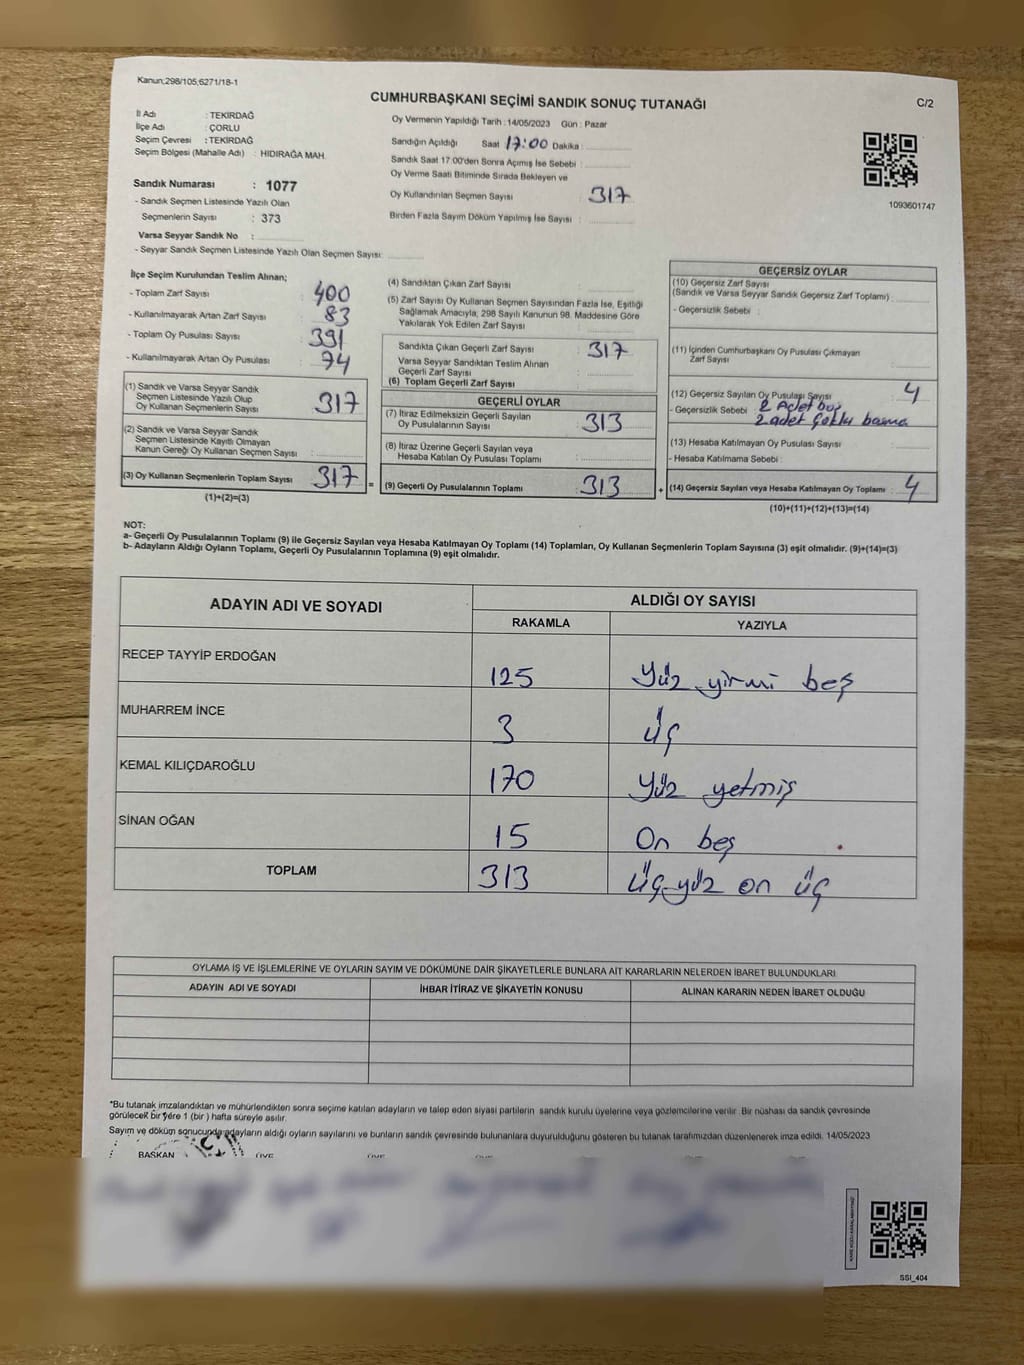 Kanun;298/105,6271/18-1
CUMHURBAŞKANI SEÇİMİ SANDIK SONUÇ TUTANAĞI
C/2
İl Adı : TEKİRDAĞ
İlçe Adı : ÇORLU
Seçim Çevresi : TEKİRDAĞ
Seçim Bölgesi (Mahalle Adı) : HIDIRAĞA MAH.
Sandık Numarası : 1077
- Sandık Seçmen Listesinde Yazılı Olan
Seçmenlerin Sayısı : 373
Varsa Seyyar Sandık No :
- Seyyar Sandık Seçmen Listesinde Yazılı Olan Seçmen Sayısı:
Oy Vermenin Yapıldığı Tarih : 14/05/2023 Gün : Pazar
Sandığın Açıldığı Saat 17:00 Dakika :
Sandık Saat 17.00'den Sonra Açımış İse Sebebi :
Oy Verme Saati Bitiminde Sırada Bekleyen ve
Oy Kullandırılan Seçmen Sayısı : 317
Birden Fazla Sayım Döküm Yapılmış İse Sayısı :
1093601747
İlçe Seçim Kurulundan Teslim Alınan;
- Toplam Zarf Sayısı : 400
- Kullanılmayarak Artan Zarf Sayısı : 83
- Toplam Oy Pusulası Sayısı : 391
- Kullanılmayarak Artan Oy Pusulası : 74
(1) Sandık ve Varsa Seyyar Sandık
Seçmen Listesinde Yazılı Olup
Oy Kullanan Seçmenlerin Sayısı : 317
(2) Sandık ve Varsa Seyyar Sandık
Seçmen Listesinde Kayıtlı Olmayan
Kanun Gereği Oy Kullanan Seçmen Sayısı :
(3) Oy Kullanan Seçmenlerin Toplam Sayısı : 317 =
(1)+(2)=(3)
(4) Sandıktan Çıkan Zarf Sayısı :
(5) Zarf Sayısı Oy Kullanan Seçmen Sayısından Fazla İse, Eşitliği
Sağlamak Amacıyla; 298 Sayılı Kanunun 98. Maddesine Göre
Yakılarak Yok Edilen Zarf Sayısı :
Sandıkta Çıkan Geçerli Zarf Sayısı : 317
Varsa Seyyar Sandıktan Teslim Alınan
Geçerli Zarf Sayısı :
(6) Toplam Geçerli Zarf Sayısı :
GEÇERLİ OYLAR
(7) İtiraz Edilmeksizin Geçerli Sayılan
Oy Pusulalarının Sayısı : 313
(8) İtiraz Üzerine Geçerli Sayılan veya
Hesaba Katılan Oy Pusulası Toplamı :
(9) Geçerli Oy Pusulalarının Toplamı : 313 +
GEÇERSİZ OYLAR
(10) Geçersiz Zarf Sayısı
(Sandık ve Varsa Seyyar Sandık Geçersiz Zarf Toplamı) :
- Geçersizlik Sebebi :
(11) İçinden Cumhurbaşkanı Oy Pusulası Çıkmayan
Zarf Sayısı :
(12) Geçersiz Sayılan Oy Pusulası Sayısı : 4
- Geçersizlik Sebebi : 2 Adet boş
2 adet çoklu basma
(13) Hesaba Katılmayan Oy Pusulası Sayısı :
- Hesaba Katılmama Sebebi :
(14) Geçersiz Sayılan veya Hesaba Katılmayan Oy Toplamı : 4
(10)+(11)+(12)+(13)=(14)
NOT:
a- Geçerli Oy Pusulalarının Toplamı (9) ile Geçersiz Sayılan veya Hesaba Katılmayan Oy Toplamı (14) Toplamları, Oy Kullanan Seçmenlerin Toplam Sayısına (3) eşit olmalıdır. (9)+(14)=(3)
b- Adayların Aldığı Oyların Toplamı, Geçerli Oy Pusulalarının Toplamına (9) eşit olmalıdır.
ADAYIN ADI VE SOYADI
ALDIĞI OY SAYISI
RAKAMLA YAZIYLA
RECEP TAYYİP ERDOĞAN 125 Yüz yirmi beş
MUHARREM İNCE 3 üç
KEMAL KILIÇDAROĞLU 170 Yüz yetmiş
SİNAN OĞAN 15 On beş
TOPLAM 313 üç yüz on üç
OYLAMA İŞ VE İŞLEMLERİNE VE OYLARIN SAYIM VE DÖKÜMÜNE DAİR ŞİKAYETLERLE BUNLARA AİT KARARLARIN NELERDEN İBARET BULUNDUKLARI
ADAYIN ADI VE SOYADI İHBAR İTİRAZ VE ŞİKAYETİN KONUSU ALINAN KARARIN NEDEN İBARET OLDUĞU
*Bu tutanak imzalandıktan ve mühürlendikten sonra seçime katılan adayların ve talep eden siyasi partilerin sandık kurulu üyelerine veya gözlemcilerine verilir. Bir nüshası da sandık çevresinde
görülecek bir yere 1 (bir ) hafta süreyle asılır.
Sayım ve döküm sonucunda adayların aldığı oyların sayılarını ve bunların sandık çevresinde bulunanlara duyurulduğunu gösteren bu tutanak tarafımızdan düzenlenerek imza edildi. 14/05/2023
BAŞKAN ÜYE ÜYE ÜYE ÜYE ÜYE
SSI_404